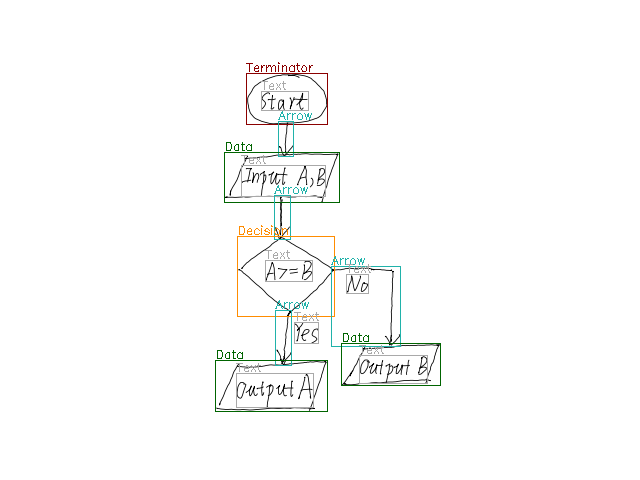 Terminator
Text
Start
Arrow
Data
Text
Input A,B
Arrow
Decision
Text
A>=B
Arrow
Text
No
Arrow
Text
Yes
Data
Text
Output B
Data
Text
Output A